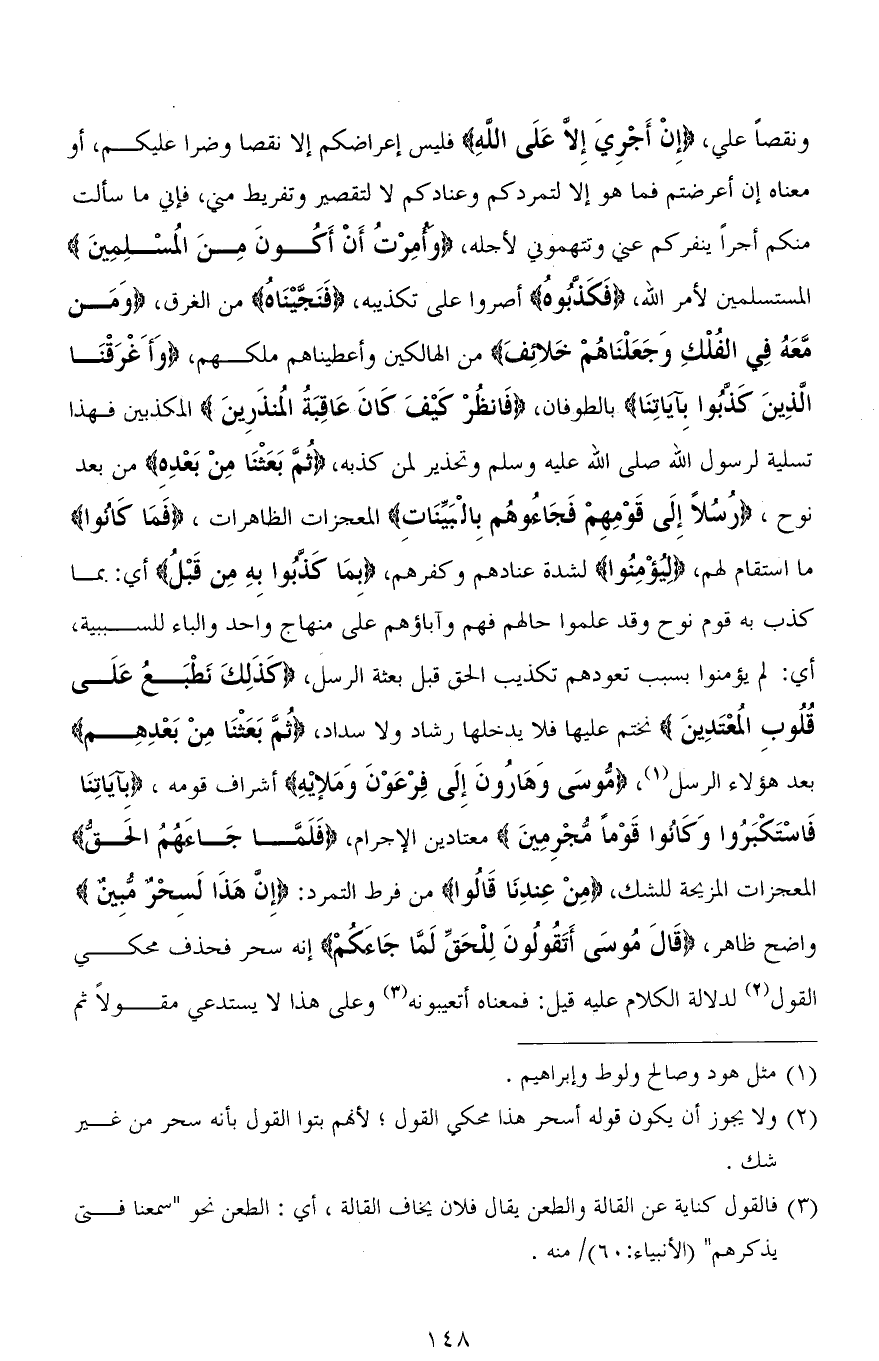 ونقصاً علي، ﴿إِنْ أَجْرِيَ إِلاَّ عَلَى اللَّهِ﴾ فليس إعراضكم إلا نقصا وضرا عليكـــم، أو
معناه إن أعرضتم فما هو إلا لتمردكم وعنادكم لا لتقصير وتفريط مني، فإني ما سألت
منكم أجراً ينفركم عني وتتهموني لأجله، ﴿وَأُمِرْتُ أَنْ أَكُــونَ مِــنَ الْمُسْــلِمِينَ ﴾
المستسلمين لأمر الله، ﴿فَكَذَّبُوهُ﴾ أصروا على تكذيبه، ﴿فَنَجَّيْنَاهُ﴾ من الغرق، ﴿وَمَــن
مَّعَهُ فِي الفُلْكِ وَجَعَلْنَاهُمْ خَلائِفَ﴾ من الهالكين وأعطيناهم ملكــهم، ﴿وَأَغْرَقْنَــا
الَّذِينَ كَذَّبُوا بِآيَاتِنَا﴾ بالطوفان، ﴿فَانظُرْ كَيْفَ كَانَ عَاقِبَةُ المُنذَرِينَ ﴾ المكذبين فــهذا
تسلية لرسول الله صلى الله عليه وسلم وتحذير لمن كذبه، ﴿ثُمَّ بَعَثْنَا مِنْ بَعْدِه﴾ من بعد
نوح ، ﴿رُسُلاً إِلَى قَوْمِهِمْ فَجَاءُوهُم بِالْبَيِّنَاتِ﴾ المعجزات الظاهرات ، ﴿فَمَا كَانُوا﴾
ما استقام لهم، ﴿لِيُؤْمِنُوا﴾ لشدة عنادهم وكفرهم، ﴿بِمَا كَذَّبُوا بِهِ مِن قَبْلُ﴾ أي: بمــا
كذب به قوم نوح وقد علموا حالهم فهم وآباؤهم على منهاج واحد والباء للســـببية،
أي: لم يؤمنوا بسبب تعودهم تكذيب الحق قبل بعثة الرسل، ﴿كَذَلِكَ نَطْبَــعُ عَلَــى
قُلُوبِ المُعْتَدِينَ ﴾ نختم عليها فلا يدخلها رشاد ولا سداد، ﴿ثُمَّ بَعَثْنَا مِنْ بَعْدِهِــــم﴾
بعد هؤلاء الرسل(١)، ﴿مُّوسَى وَهَارُونَ إِلَى فِرْعَوْنَ وَمَلإِيْهِ﴾ أشراف قومه ، ﴿بِآيَاتِنَا
فَاسْتَكْبَرُوا وَكَانُوا قَوْماً مُّجْرِمِينَ ﴾ معتادين الإجرام، ﴿فَلَمَّـــا جَــاءَهُمُ الحَــقُّ﴾
المعجزات المزيحة للشك، ﴿مِنْ عِندِنَا قَالُوا﴾ من فرط التمرد: ﴿إِنَّ هَذَا لَسِحْرٌ مُّبِينٌ ﴾
واضح ظاهر، ﴿قَالَ مُوسَى أَتَقُولُونَ لِلْحَقِّ لَمَّا جَاءَكُمْ﴾ إنه سحر فحذف محكــــي
القول(٢) لدلالة الكلام عليه قيل: فمعناه أتعيبونه(٣) وعلى هذا لا يستدعي مقــــولاً ثم
(١) مثل هود وصالح ولوط وإبراهيم .
(٢) ولا يجوز أن يكون قوله أسحر هذا محكي القول ؛ لأنهم بتوا القول بأنه سحر من غـــير
شك .
(٣) فالقول كناية عن القالة والطعن يقال فلان يخاف القالة ، أي : الطعن نحو "سمعنا فـــتى
يذكرهم" (الأنبياء:٦٠)/ منه .
١٤٨